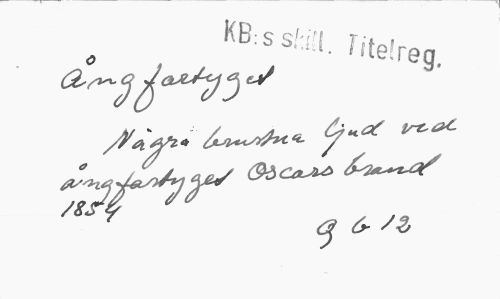 KB:s skill. Titelreg.
Ångfartyget
Några brustna ljud ved
ångfartyget Oscars brand
1854
G 6 12